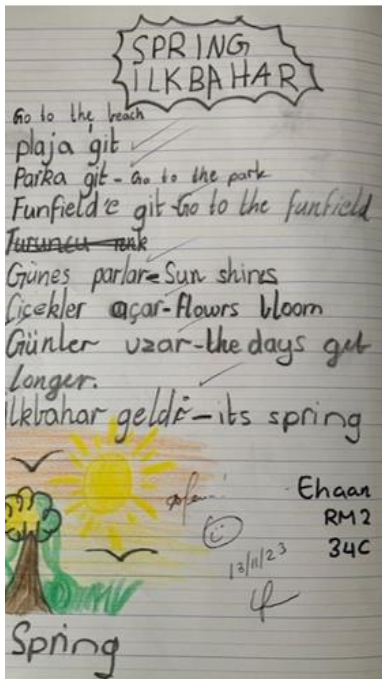 SPRING
ILKBAHAR
Go to the beach
plaja git
Parka git - Go to the park
Funfield'e git - Go to the funfield
Turuncu renk
Günes parlar - Sun shines
Çiçekler açar - flowrs bloom
Günler uzar - the days get
longer.
ilkbahar geldi - its spring
Ehaan
RM2
34C
13/11/23
Spring